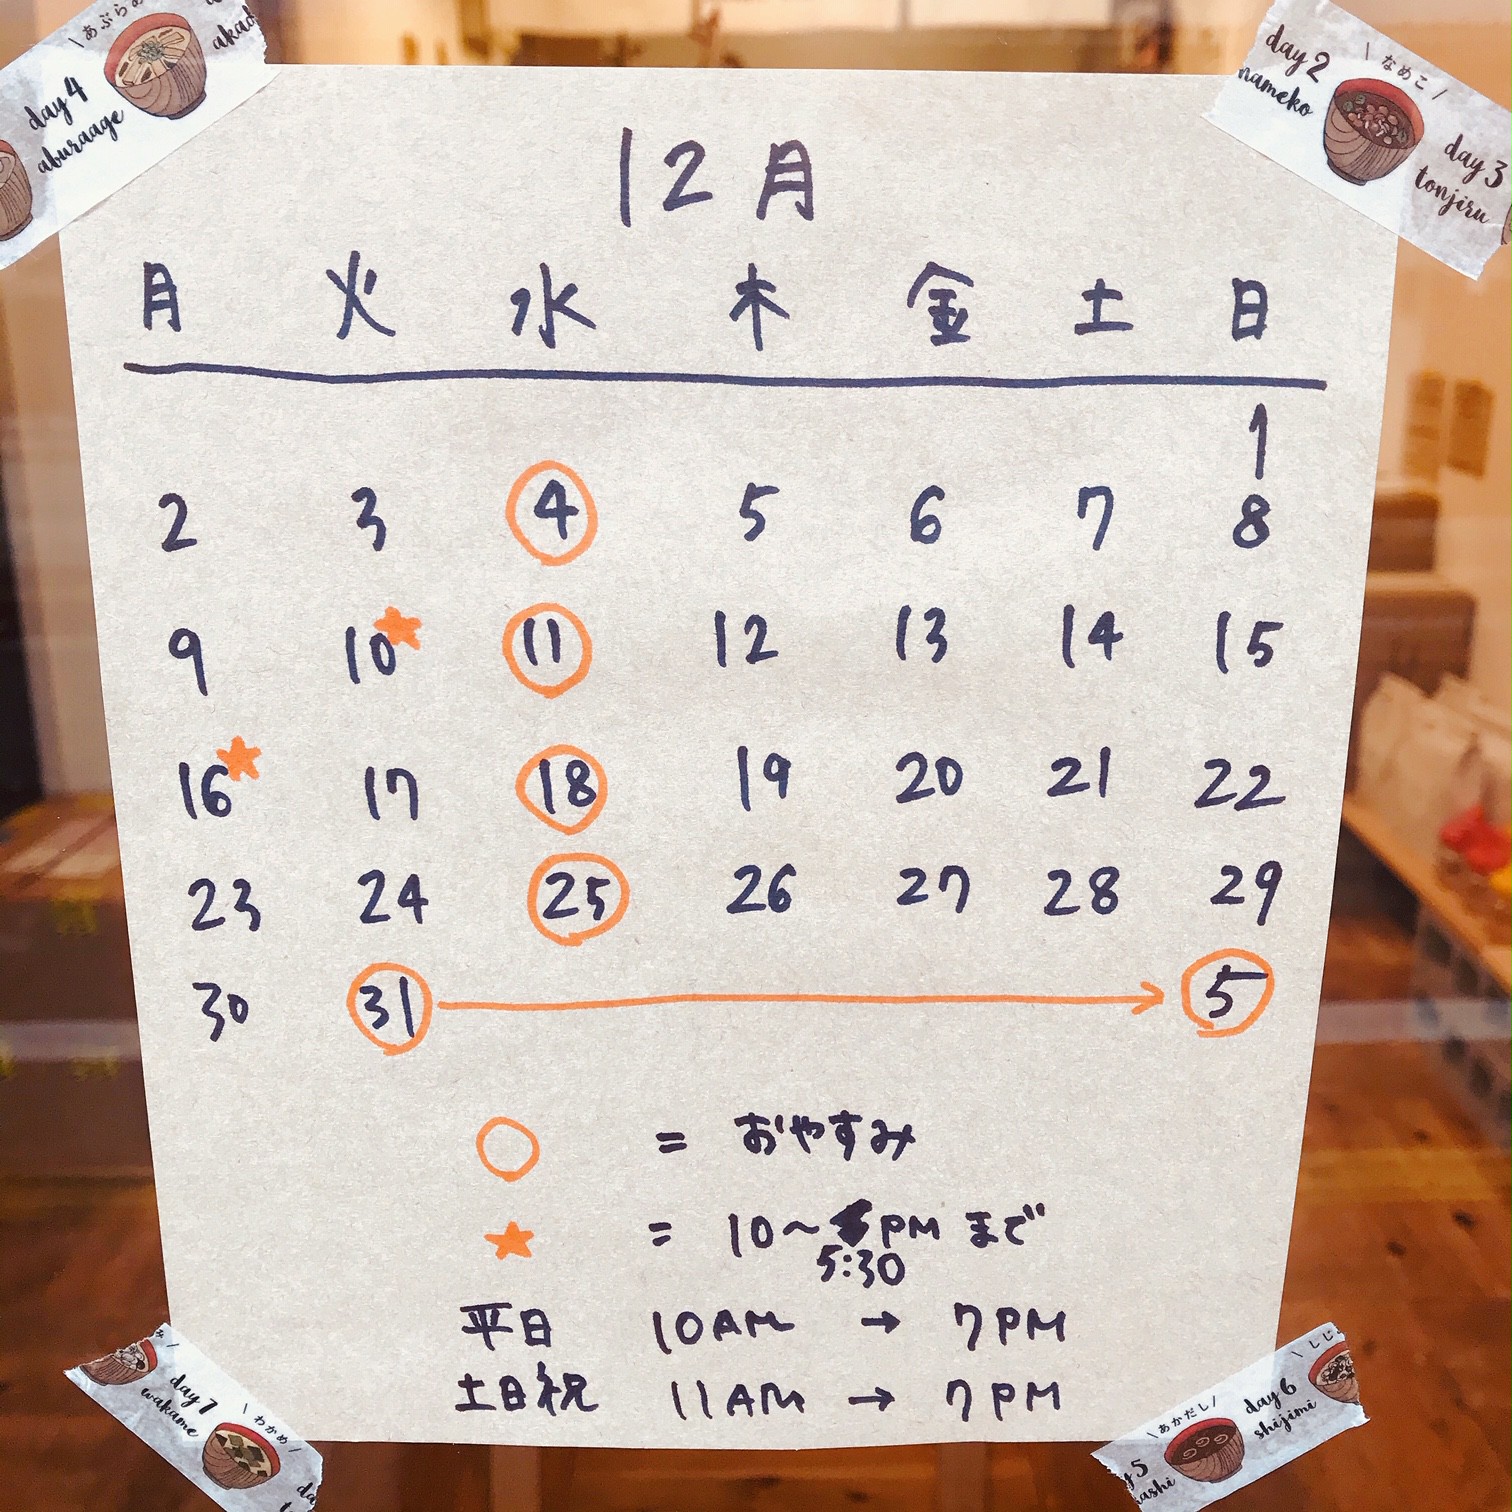 \あぶらあ
day 4
aburaage
akad
day 2
nameko
\なめこ/
day 3
tonjiru
12月
月 火 水 木 金 土 日
1
2 3 4 5 6 7 8
9 10★ 11 12 13 14 15
16★ 17 18 19 20 21 22
23 24 25 26 27 28 29
30 31 → 5
○ = おやすみ
★ = 10〜 PM まで
5:30
平日 10AM → 7PM
土日祝 11AM → 7PM
day 7
wakame
\わかめ/
\あかだし/
day 6
shijimi
\しじ
5
ashi